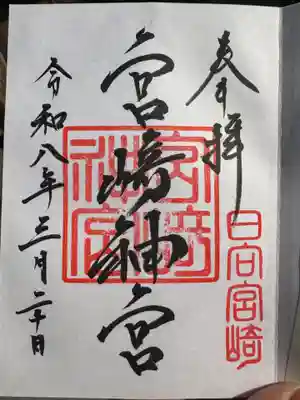 奉拝
日向宮崎
宮崎神宮
令和八年三月二十日